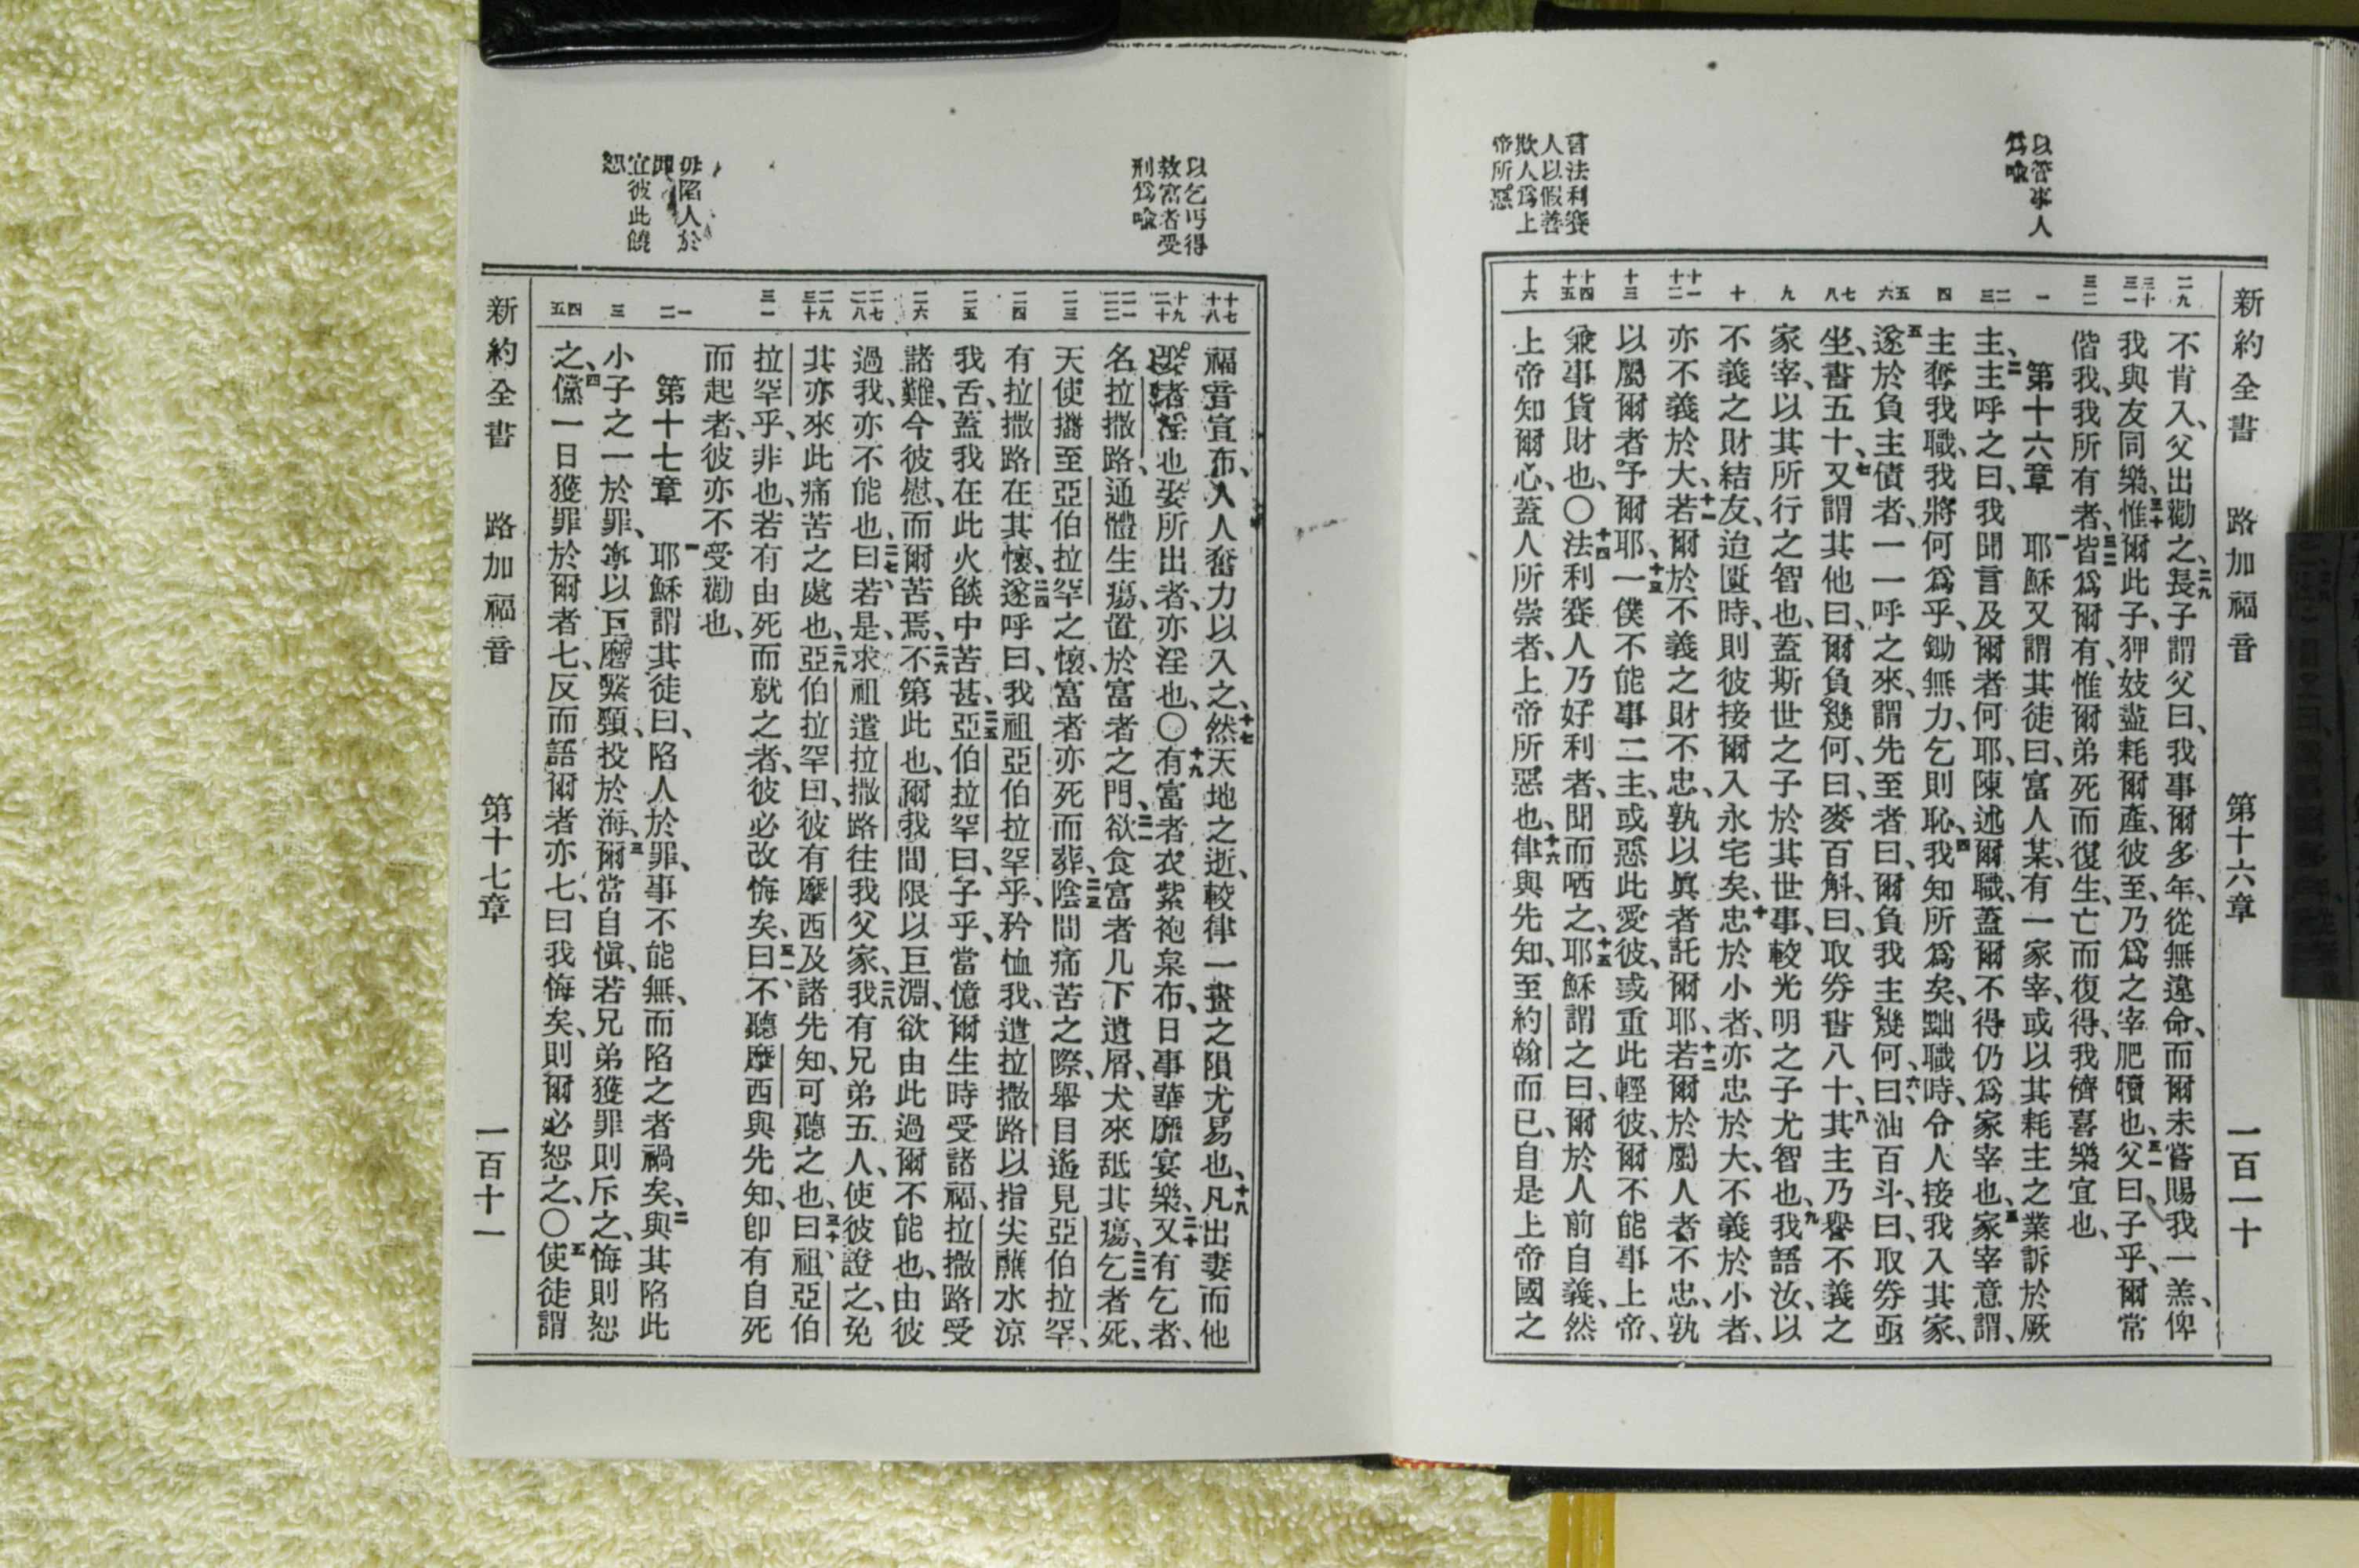 新約全書　路加福音　第十六章　一百一十
以管事人
爲喩
言法利賽
人以假善
欺人爲上
帝所惡
二九
三十
三一
三二
一
二
三
四
五
六
七
八
九
十
十一
十二
十三
十四
十五
十六
不肯入、父出勸之、二九長子謂父曰、我事爾多年、從無違命、而爾未嘗賜我一羔、俾
我與友同樂、三十惟爾此子、狎妓盡耗爾產、彼至、乃爲之宰肥犢也、三一父曰、子乎、爾常
偕我、我所有者、三二皆爲爾有、惟爾弟死而復生、亡而復得、我儕喜樂宜也、
第十六章　一耶穌又謂其徒曰、富人某、有一家宰、或以其耗主之業訴於厥
主、二主呼之曰、我聞言及爾者何耶、陳述爾職、蓋爾不得仍爲家宰也、三家宰意謂、
主奪我職、我將何爲乎、鋤無力、乞則恥、四我知所爲矣、黜職時、令人接我入其家、
五遂於負主債者、一一呼之來、謂先至者曰、爾負我主幾何、六曰油百斗、曰、取券亟
坐、書五十、七又謂其他曰、爾負幾何、曰麥百斛、曰、取券書八十、八其主乃譽不義之
家宰、以其所行之智也、蓋斯世之子於其世事、較光明之子尤智也、九我語汝、以
不義之財結友、迨匱時、則彼接爾入永宅矣、十忠於小者、亦忠於大、不義於小者、
亦不義於大、十一若爾於不義之財不忠、孰以眞者託爾耶、十二若爾於屬人者不忠、孰
以屬爾者予爾耶、十三一僕不能事二主、或惡此愛彼、或重此輕彼、爾不能事上帝、
兼事貨財也、〇十四法利賽人乃好利者、聞而哂之、十五耶穌謂之曰、爾於人前自義、然
上帝知爾心、蓋人所崇者、上帝所惡也、十六律與先知、至約翰而已、自是上帝國之
以乞丐得
救富者受
刑爲喩
毋陷人於
罪
宜彼此饒
恕
十七
十八
十九
二十
二一
二二
二三
二四
二五
二六
二七
二八
二九
三十
三一
一
二
三
四
五
福音宣布、人人奮力以入之、十七然天地之逝、較律一畫之隕尤易也、十八凡出妻而他
娶者淫也、娶所出者、亦淫也、〇十九有富者衣紫袍枲布、日事華靡宴樂、二十又有乞者、
名拉撒路、通體生瘍、置於富者之門、二一欲食富者几下遺屑、犬來舐其瘍、二二乞者死、
天使攜至亞伯拉罕之懷、富者亦死而葬、二三陰間痛苦之際、舉目遙見亞伯拉罕、
有拉撒路在其懷、二四遂呼曰、我祖亞伯拉罕乎、矜恤我、遣拉撒路以指尖蘸水涼
我舌、蓋我在此火燄中苦甚、二五亞伯拉罕曰、子乎、當憶爾生時受諸福、拉撒路受
諸難、今彼慰、而爾苦焉、二六不第此也、爾我間限以巨淵、欲由此過爾不能也、由彼
過我、亦不能也、二七曰、若是、求祖遣拉撒路往我父家、二八我有兄弟五人、使彼證之、免
其亦來此痛苦之處也、二九亞伯拉罕曰、彼有摩西及諸先知、可聽之也、三十曰、祖亞伯
拉罕乎、非也、若有由死而就之者、彼必改悔矣、三一曰、不聽摩西與先知、卽有自死
而起者、彼亦不受勸也、
第十七章　一耶穌謂其徒曰、陷人於罪、事不能無、而陷之者禍矣、二與其陷此
小子之一於罪、寧以巨磨繫頸、投於海、三爾當自愼、若兄弟獲罪則斥之、悔則恕
之、四儻一日獲罪於爾者七、反而語爾者亦七、曰我悔矣、則爾必恕之、〇五使徒謂
新約全書　路加福音　第十七章　一百十一